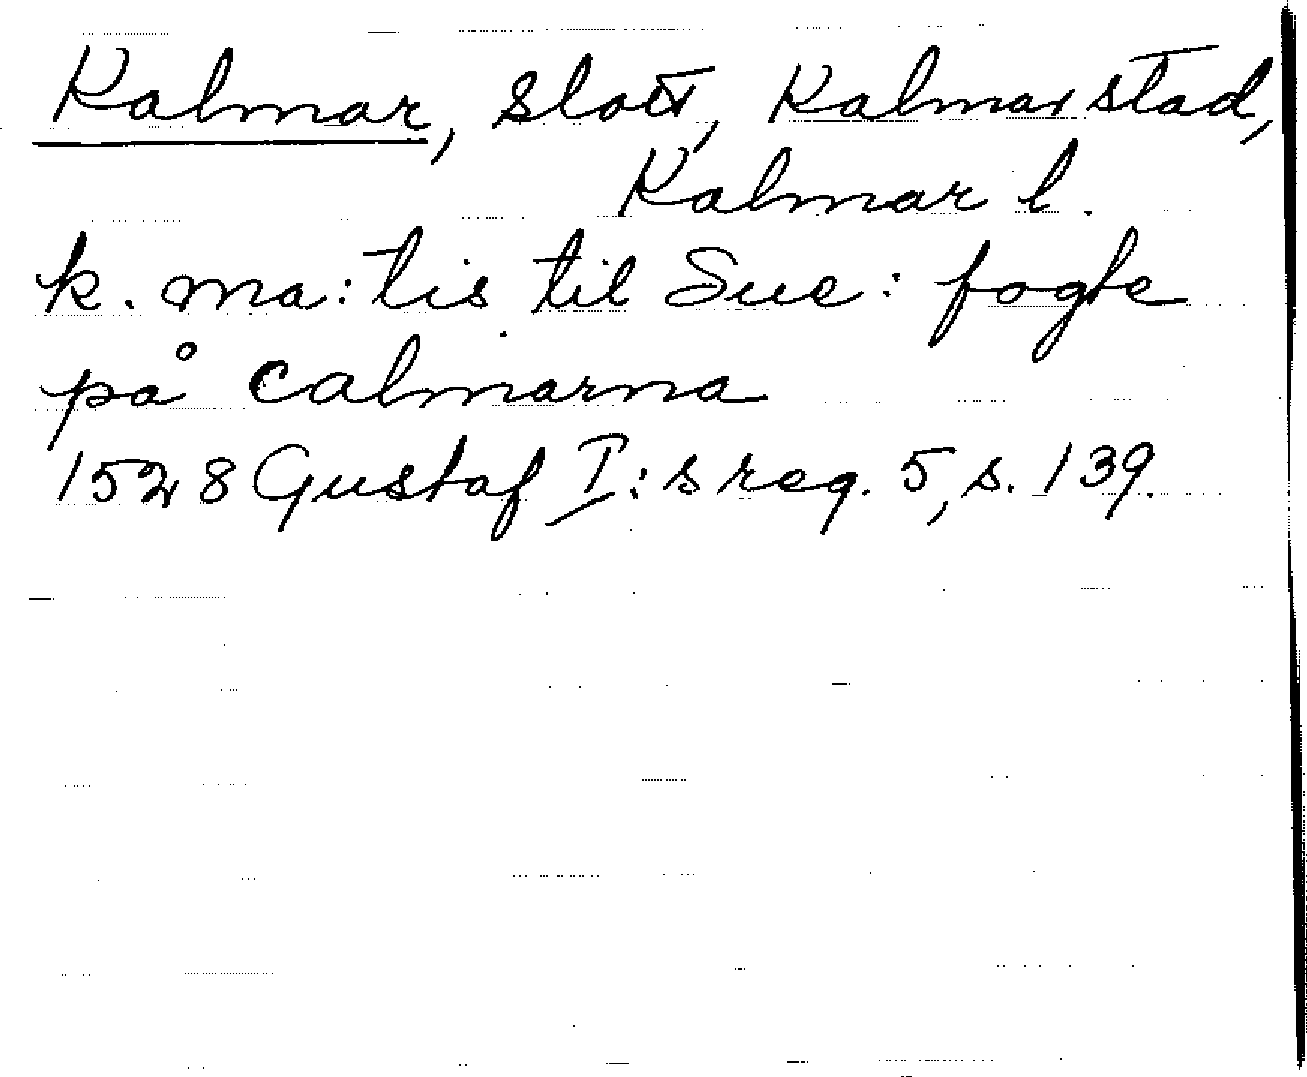 Kalmar, slott, Kalmar stad,
Kalmar l.
k. ma:tis til Sue: fogte
på calmarna
1528 Gustaf I:s reg. 5, s. 139.